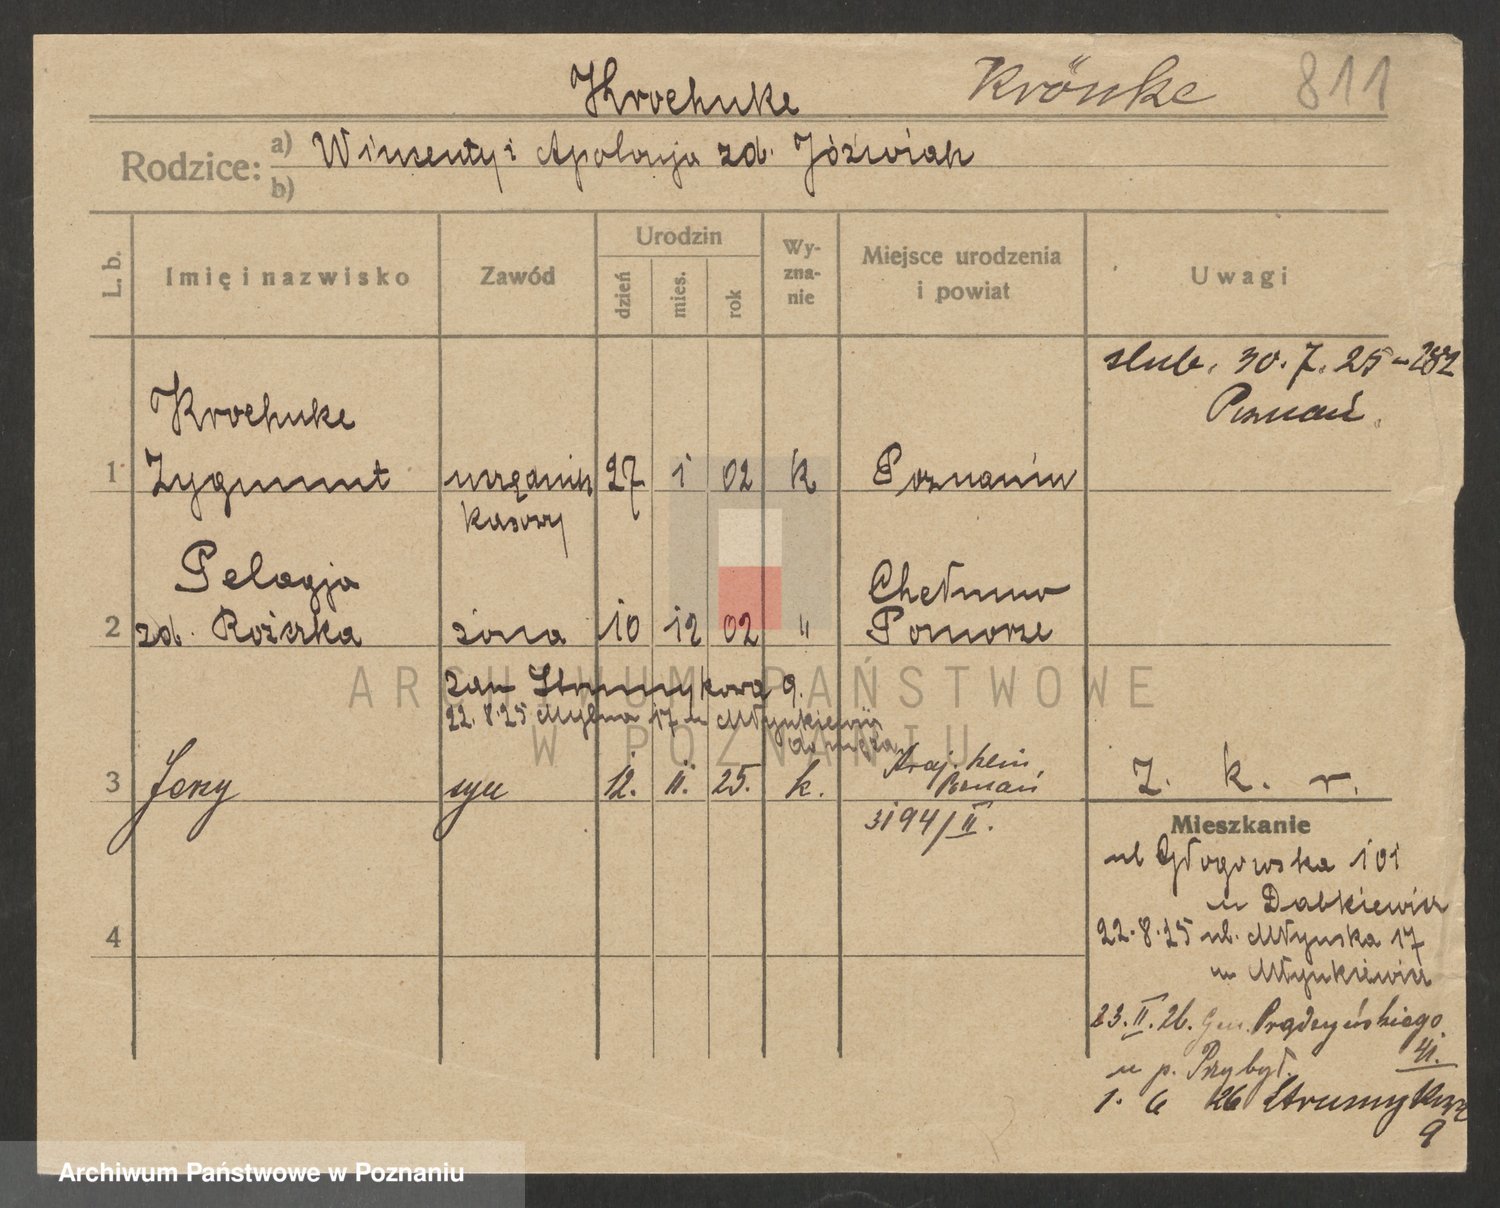 Krochnke Krönke 811
Rodzice: a) Wincenty i Apolonja zd. Jóźwiak
b)
L. b. Imię i nazwisko Zawód Urodzin dzień mies. rok Wyznanie Miejsce urodzenia i powiat Uwagi
ślub. 30.7.25 - 282
Poznań.
Krochnke
1 Zygmunt urzędnik 27 1 02 k Poznaniu
kasowy
Pelagja Chełmno
2 zd. Rożeńka żona 10 12 02 " Pomorze
zam Strumykowa 9.
22.8.25 Młyńska 17 u Młynkiewicz
do męża
3 Jerzy syn 12. 11. 25. k. Kraj. klin. Z. k. r.
Poznań
3194/II.
Mieszkanie
ul Głogowska 101
u Dabkiewicz
4
22.8.25 ul. Młyńska 17
u Młynkiewicz
23.II.26. Gen. Prądzyńskiego
41.
u p. Przybył.
1. 6 26 Strumykowa
9
ARCHIWUM PAŃSTWOWE
W POZNANIU
Archiwum Państwowe w Poznaniu